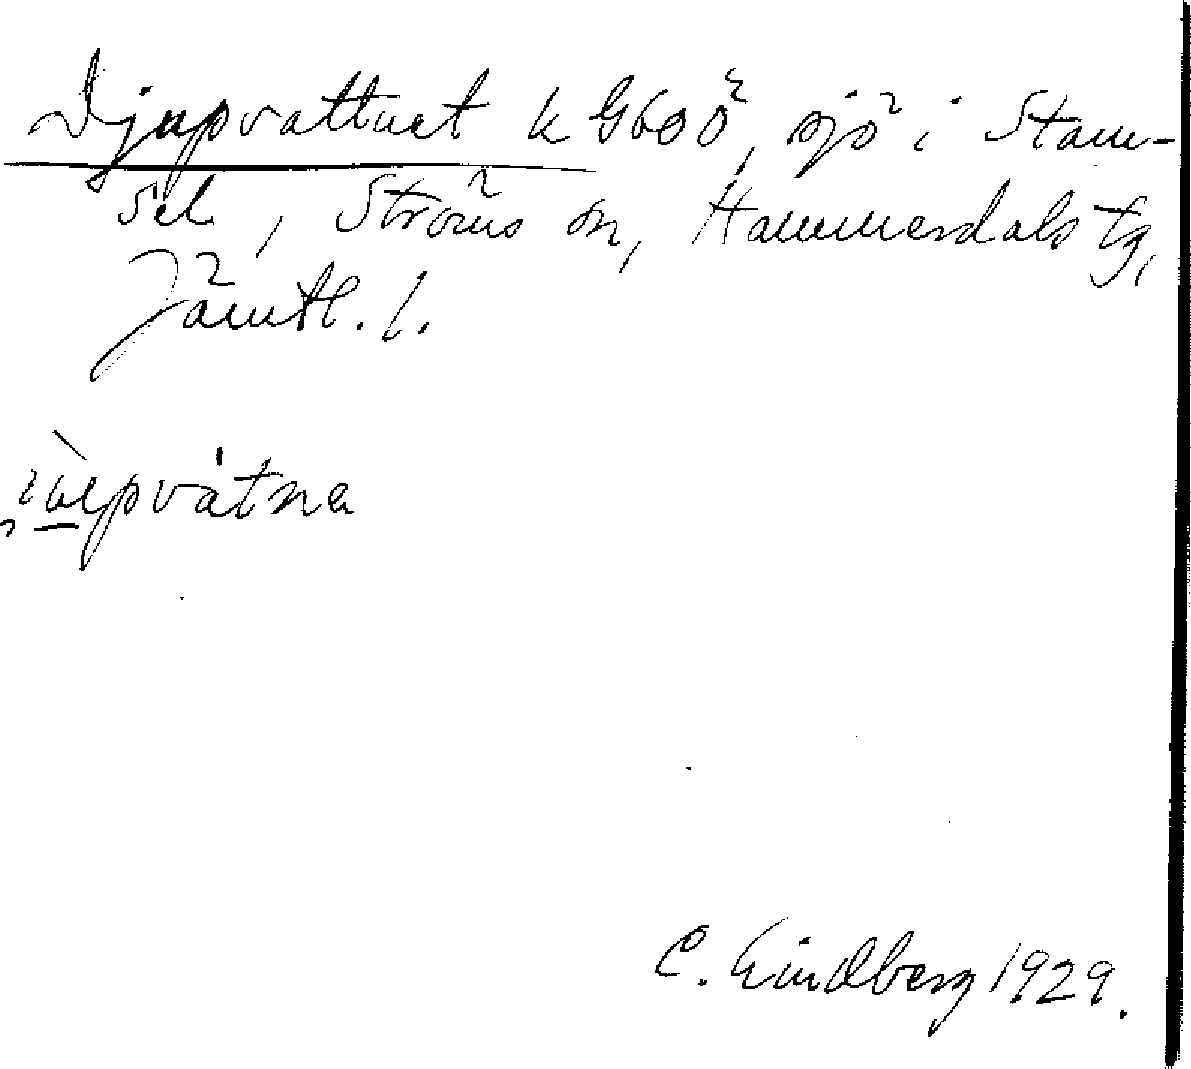 Djupvattnet k G600, sjö i Stam-
sel, Ströms sn, Hammerdals tg,
Jämtl. l.
C. Lindberg 1929.